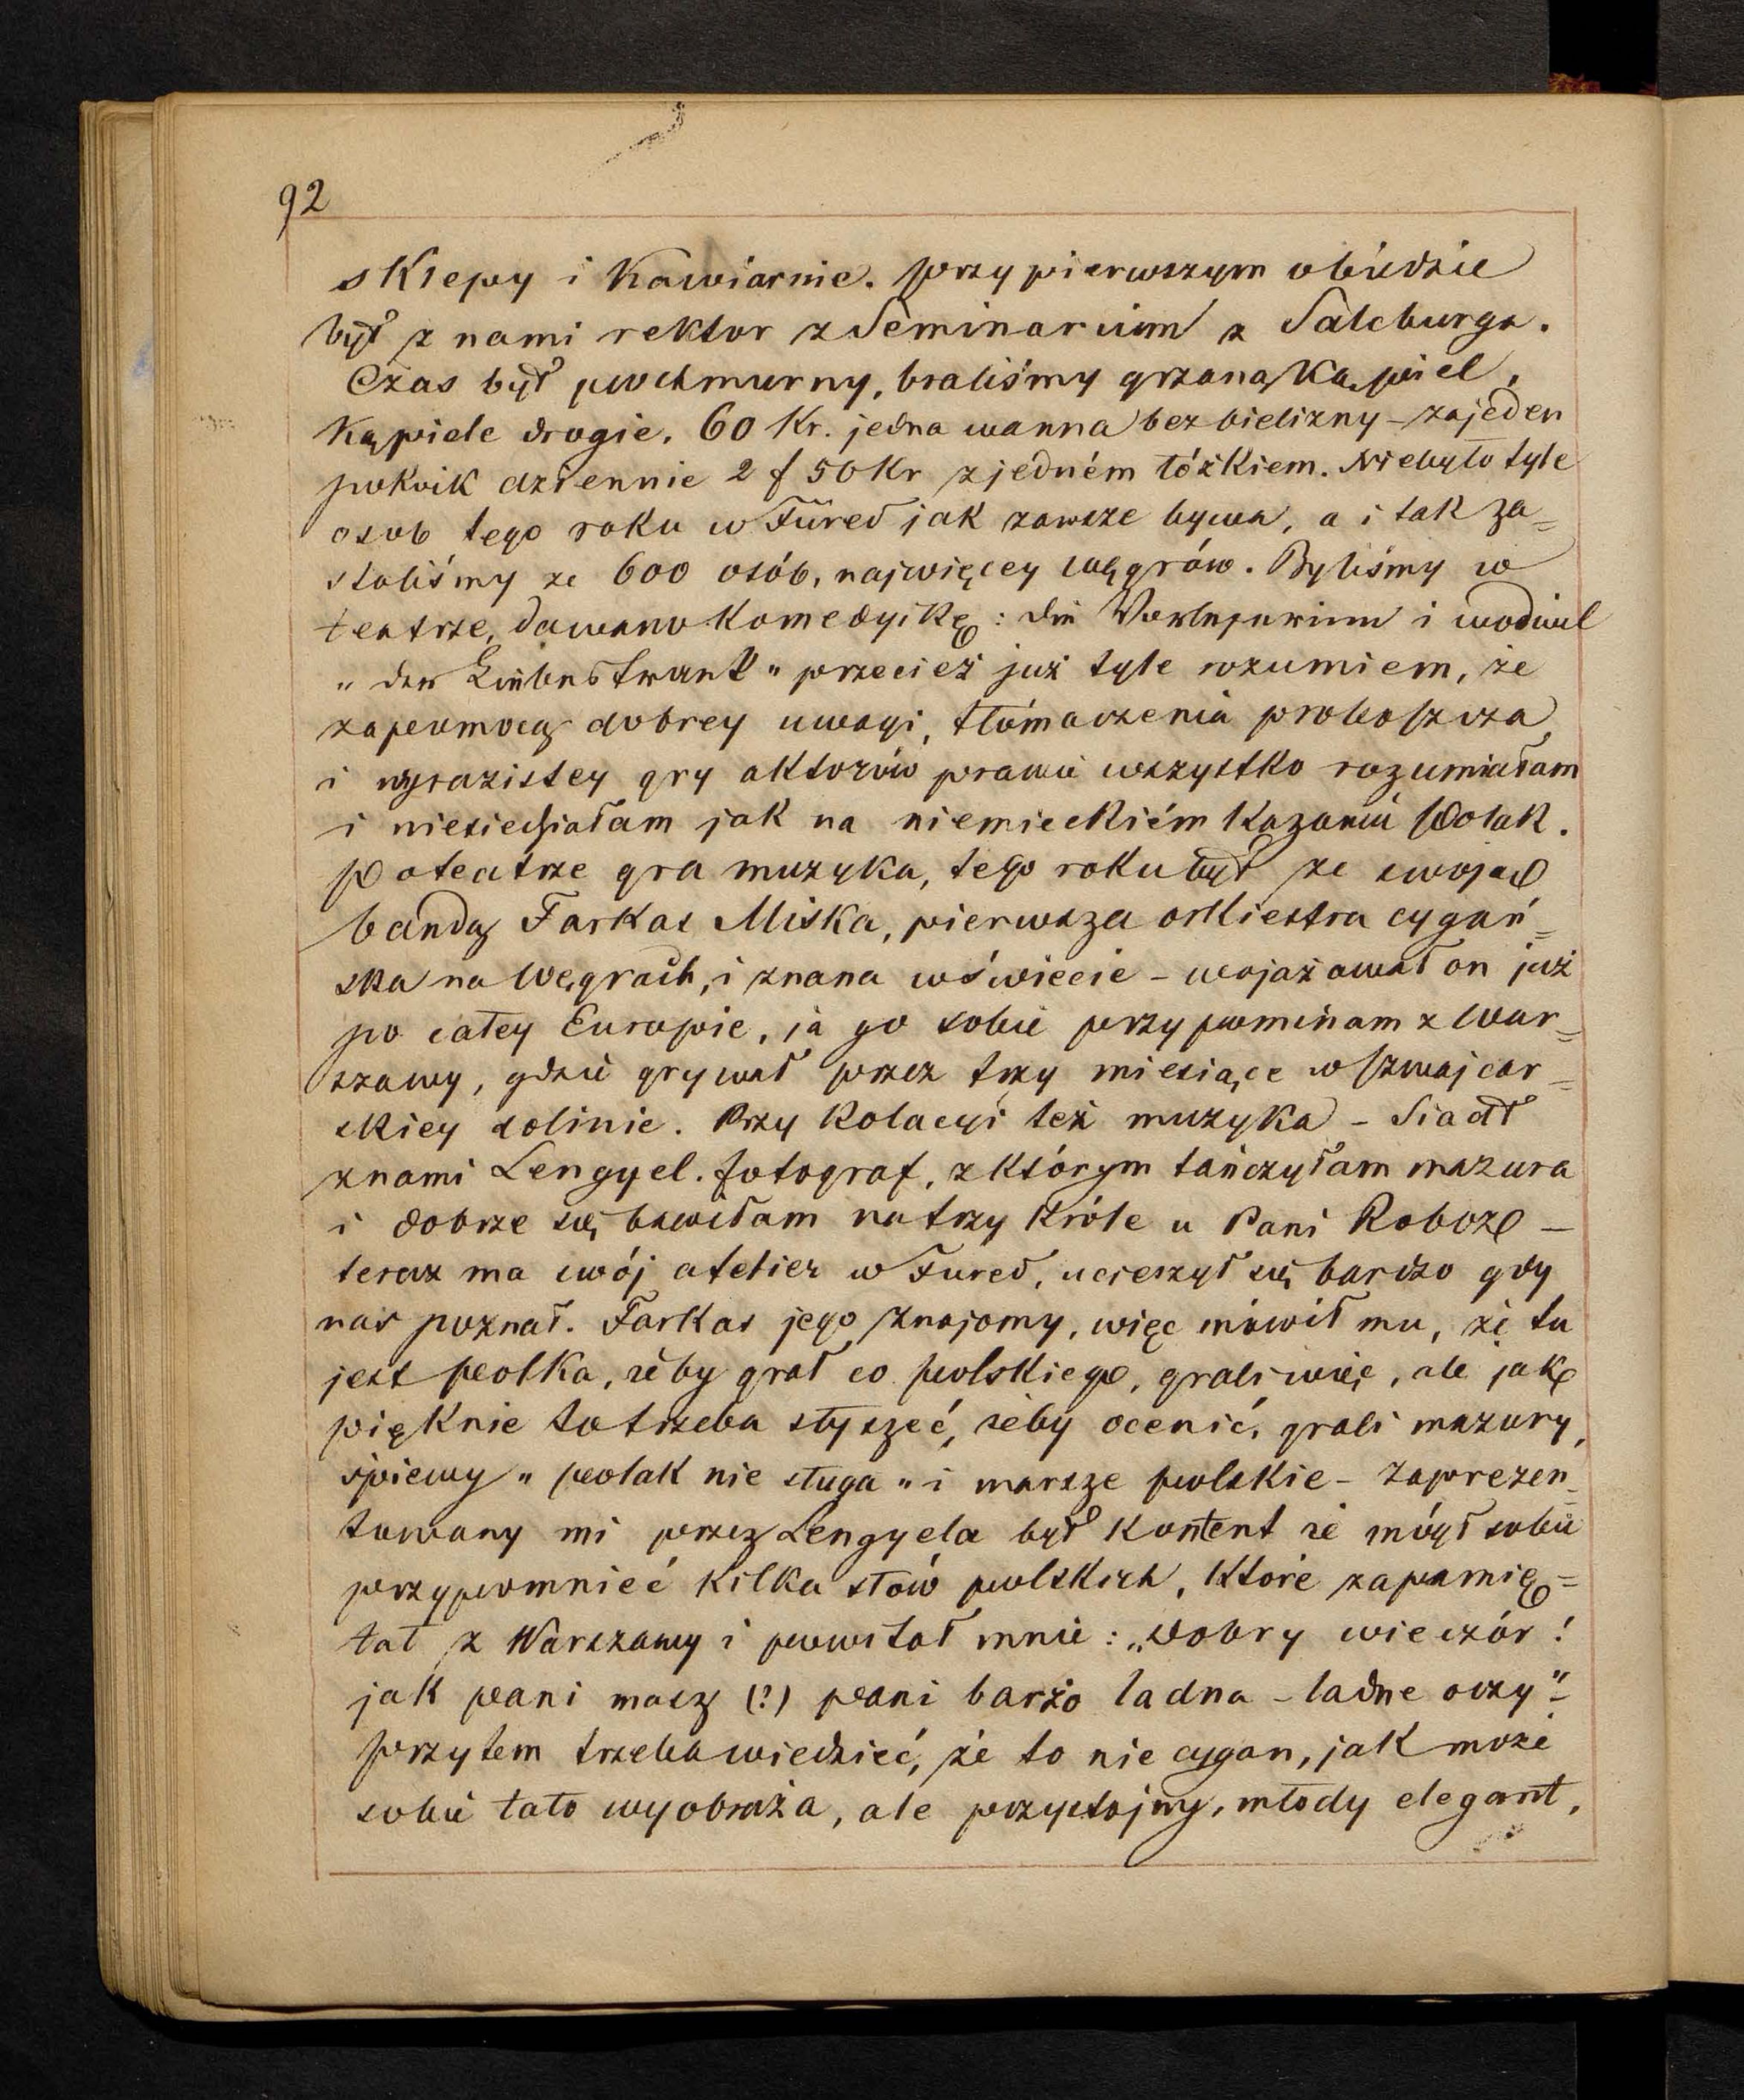 92
sklepy i kawiarnie. przy pierwszym obiedzie
był z nami rektor z Seminarium z Salcburga.
Czas był pochmurny, braliśmy grzaną kąpiel,
kąpiele drogie. 60 kr. jedna wanna bez bielizny – za jeden
pokoik dziennie 2 f 50 kr z jedném łóżkiem. Niebyło tyle
osob tego roku w Füred jak zawsze bywa, a i tak za=
staliśmy ze 600 osób, najwięcey węgrów. Byliśmy w
teatrze, dawano komedyikę: die  i wodwil
„der Liebestrank" przecież już tyle rozumiem, że
zapomocą dobrey uwagi, tłómaczenia proboszcza,
i wyrazistey gry aktorów prawie wszystko rozumiałam
i niesiedziałam jak na niemieckiém kazaniu Polak.
Po teatrze gra muzyka, tego roku był ze swoją
bandą Farkas Miska, pierwsza orkiestra cygań=
ska na Węgrach, i znana w świecie – wojażował on już
po całey Europie, ja go sobie przypominam z War=
szawy, gdzie grywał przez trzy miesiące w szwajcar=
skiey dolinie. Przy kolacyi też muzyka – Siadł
z nami Lengyel. fotograf, z którym tańczyłam mazura
i dobrze się bawiłam na trzy króle u Pani Roboz –
teraz ma swój atelier w Fured, ucieszył się bardzo gdy
nas poznał. Farkas jego znajomy, więc mówił mu, że tu
jest polka, żeby grał co polskiego, grali więc, ale jak
pięknie to trzeba słyszeć, żeby ocenić, grali mazury,
śpiewy „polak nie sługa" i marsze polskie – Zaprezen=
towany mi przez Lengyela był kontent że mógł sobie
przypomnieć kilka słów polskich, które zapamię=
tał z Warszawy i powitał mnie: „Dobry wieczór!
jak pani masz (?) pani barżo ladna – ladne oczy" –
przytem trzeba wiedzieć, że to nie cygan, jak może
sobie tato wyobraża, ale przystojny, młody elegant,